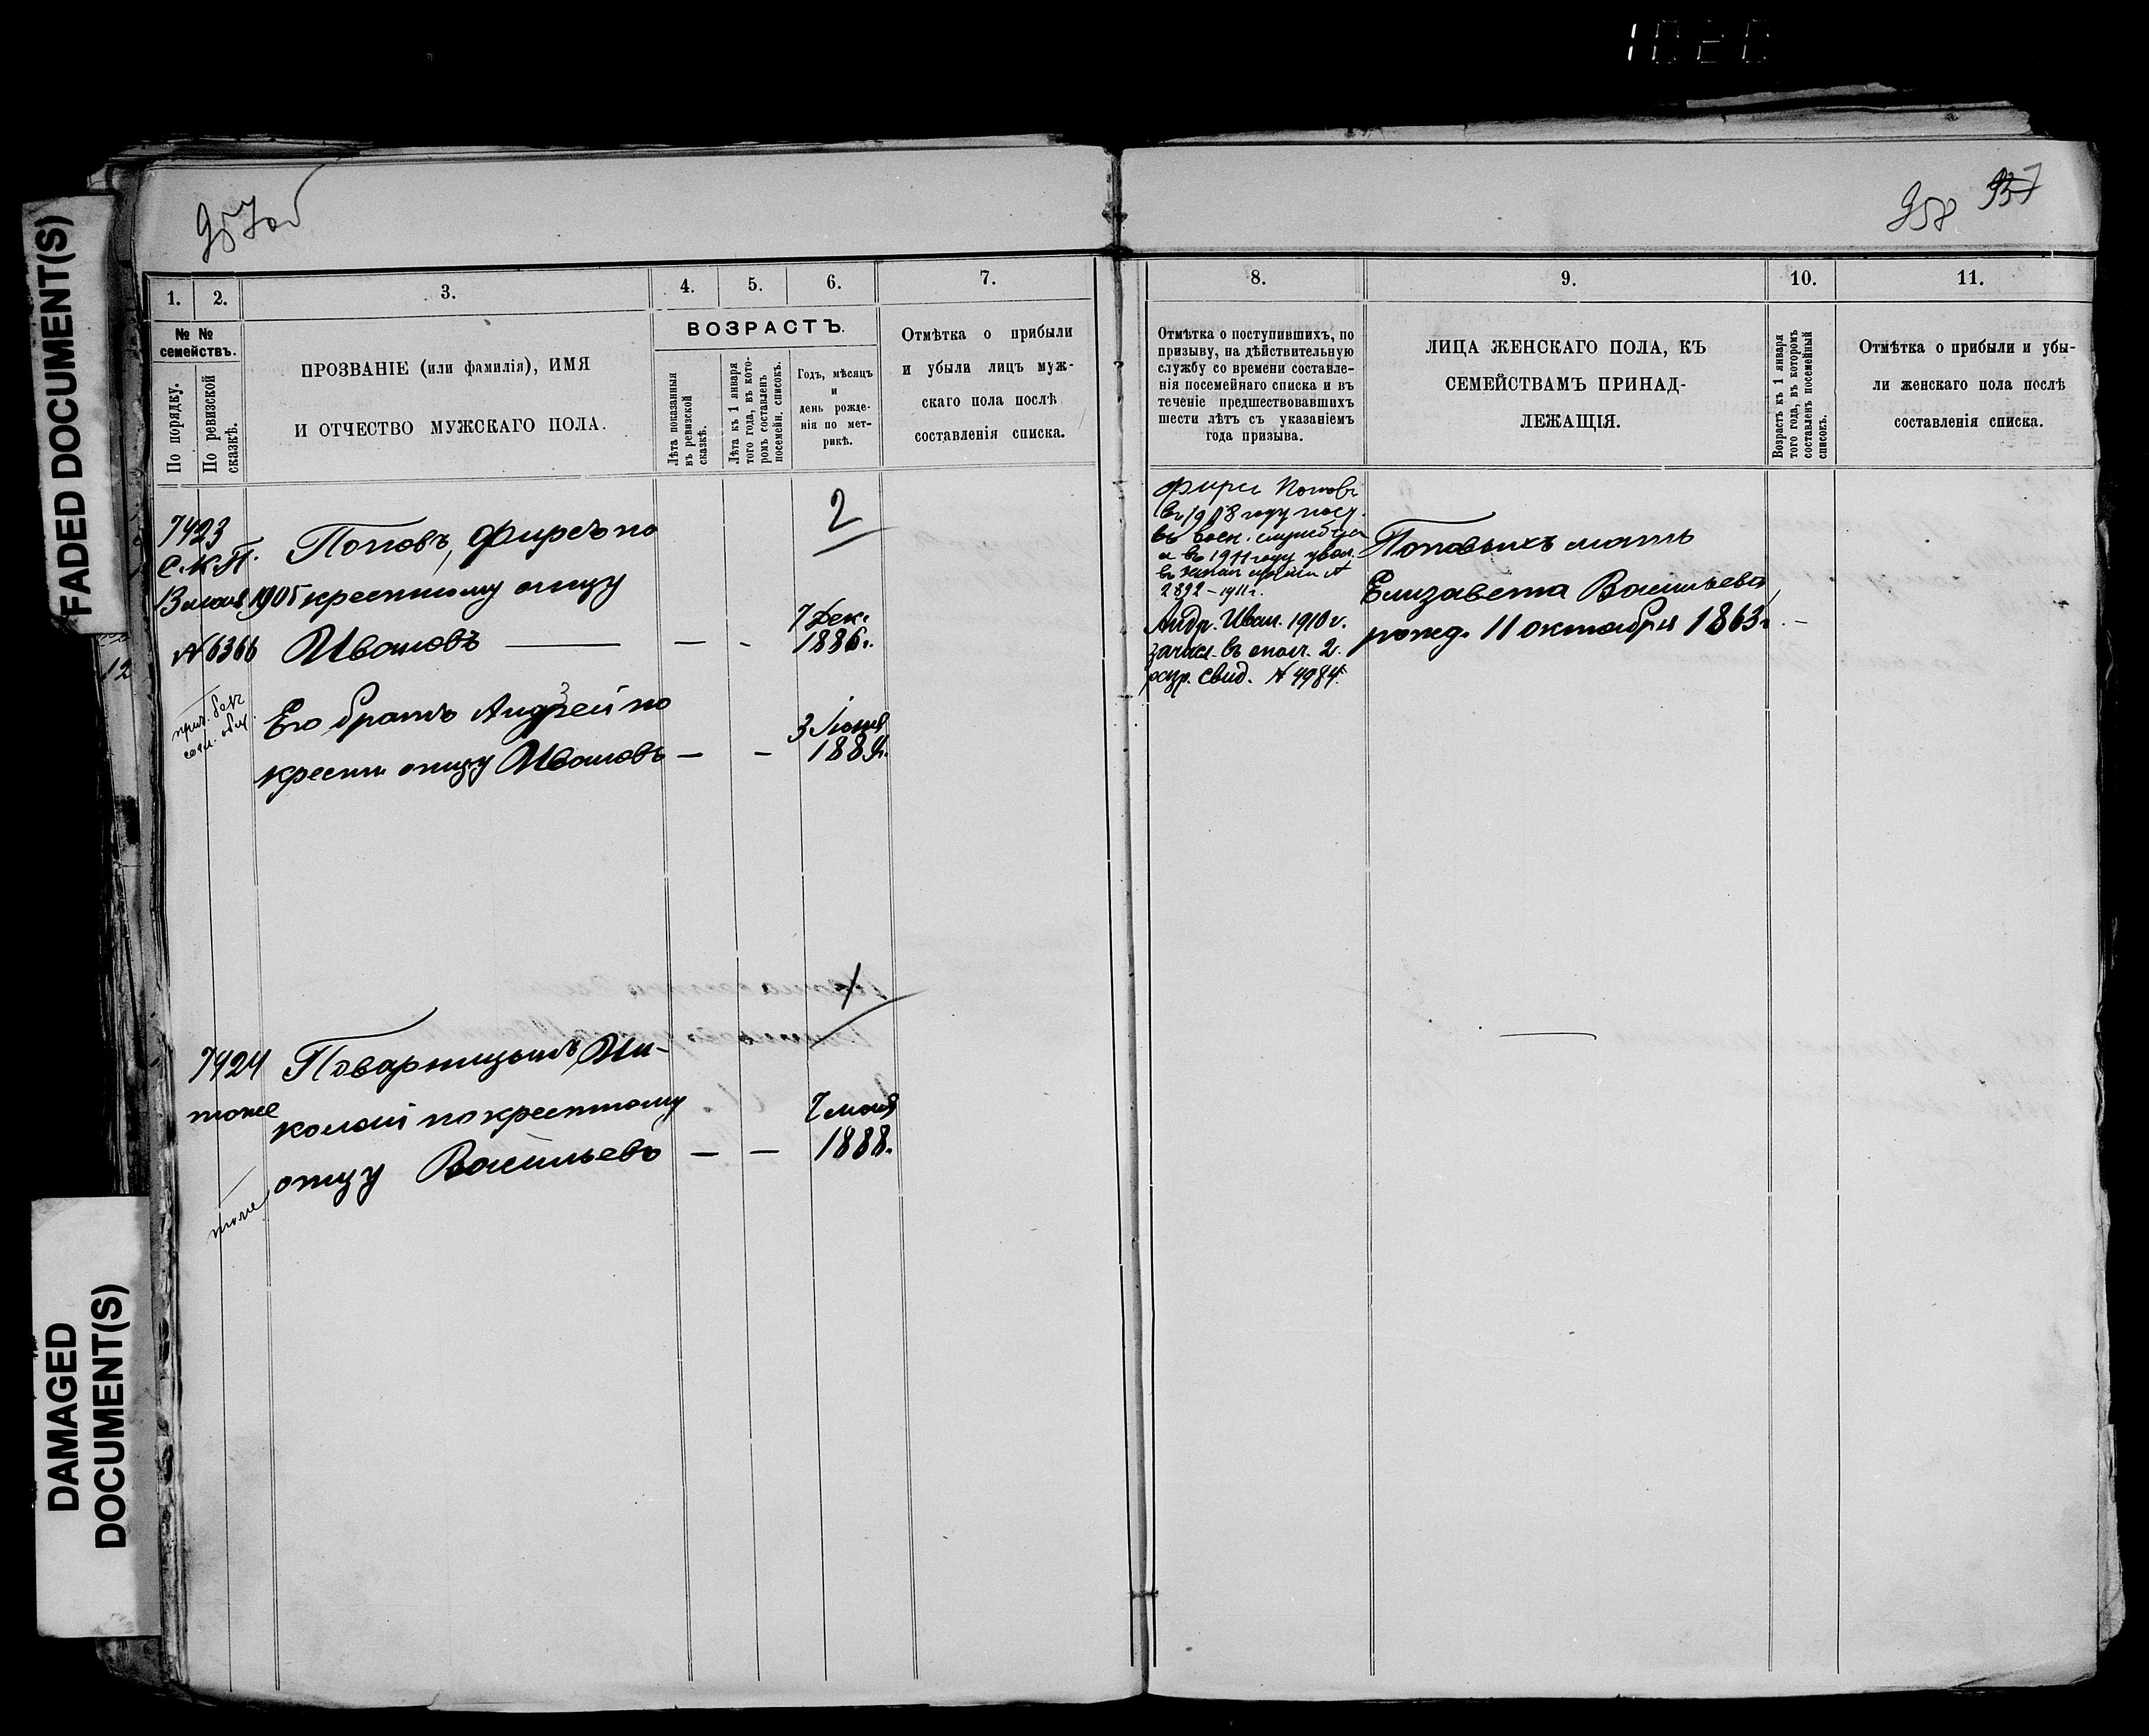 1020
FADED DOCUMENT(S)
DAMAGED
DOCUMENT(S)
957об
958 957
1. 2. 3. 4. 5. 6. 7.
№ №
семействъ.
По порядку.
По ревизской
сказкѣ.
ПРОЗВАНІЕ (или фамилія), ИМЯ
И ОТЧЕСТВО МУЖСКАГО ПОЛА.
ВОЗРАСТЪ.
Лѣта показанныя
въ ревизской
сказкѣ.
Лѣта къ 1 января
того года, въ кото-
ромъ составленъ
посемейн. списокъ.
Годъ, мѣсяцъ
и
день рожде-
нія по мет-
рикѣ.
Отмѣтка о прибыли
и убыли лицъ муж-
скаго пола послѣ
составленія списка.
7423
С.К.П.
13 мая 1905
№ 6366
Поповъ, Фирсъ по
крестному отцу
Ивановъ — - 7 Дек.
1886г.
2
прич. безъ
согл. общ.
Его братъ Андрей по
крестн. отцу Ивановъ — - 3 Іюня
1889г.
3
1
7424
тоже
Поварницынъ, Ни-
колай по крестному
отцу Васильевъ — — 7 мая
1888.
тоже
8. 9. 10. 11.
Отмѣтка о поступившихъ, по
призыву, на дѣйствительную
службу со времени составле-
нія посемейнаго списка и въ
теченіе предшествовавшихъ
шести лѣтъ съ указаніемъ
года призыва.
ЛИЦА ЖЕНСКАГО ПОЛА, КЪ
СЕМЕЙСТВАМЪ ПРИНАД-
ЛЕЖАЩІЯ.
Возрастъ къ 1 января
того года, въ которомъ
составленъ посемейный
списокъ.
Отмѣтка о прибыли и убы-
ли женскаго пола послѣ
составленія списка.
Фирсъ Поповъ
въ 1908 году пост.
въ воен. службу
а въ 1911 году увол.
въ запас арміи №
2892 – 1911 г.
Андр. Иван. 1910 г.
зачисл. въ ополч. 2
разр. свид. № 4984.
Поповыхъ мать
Елизавета Васильева
рожд. 11 октября 1863г. –